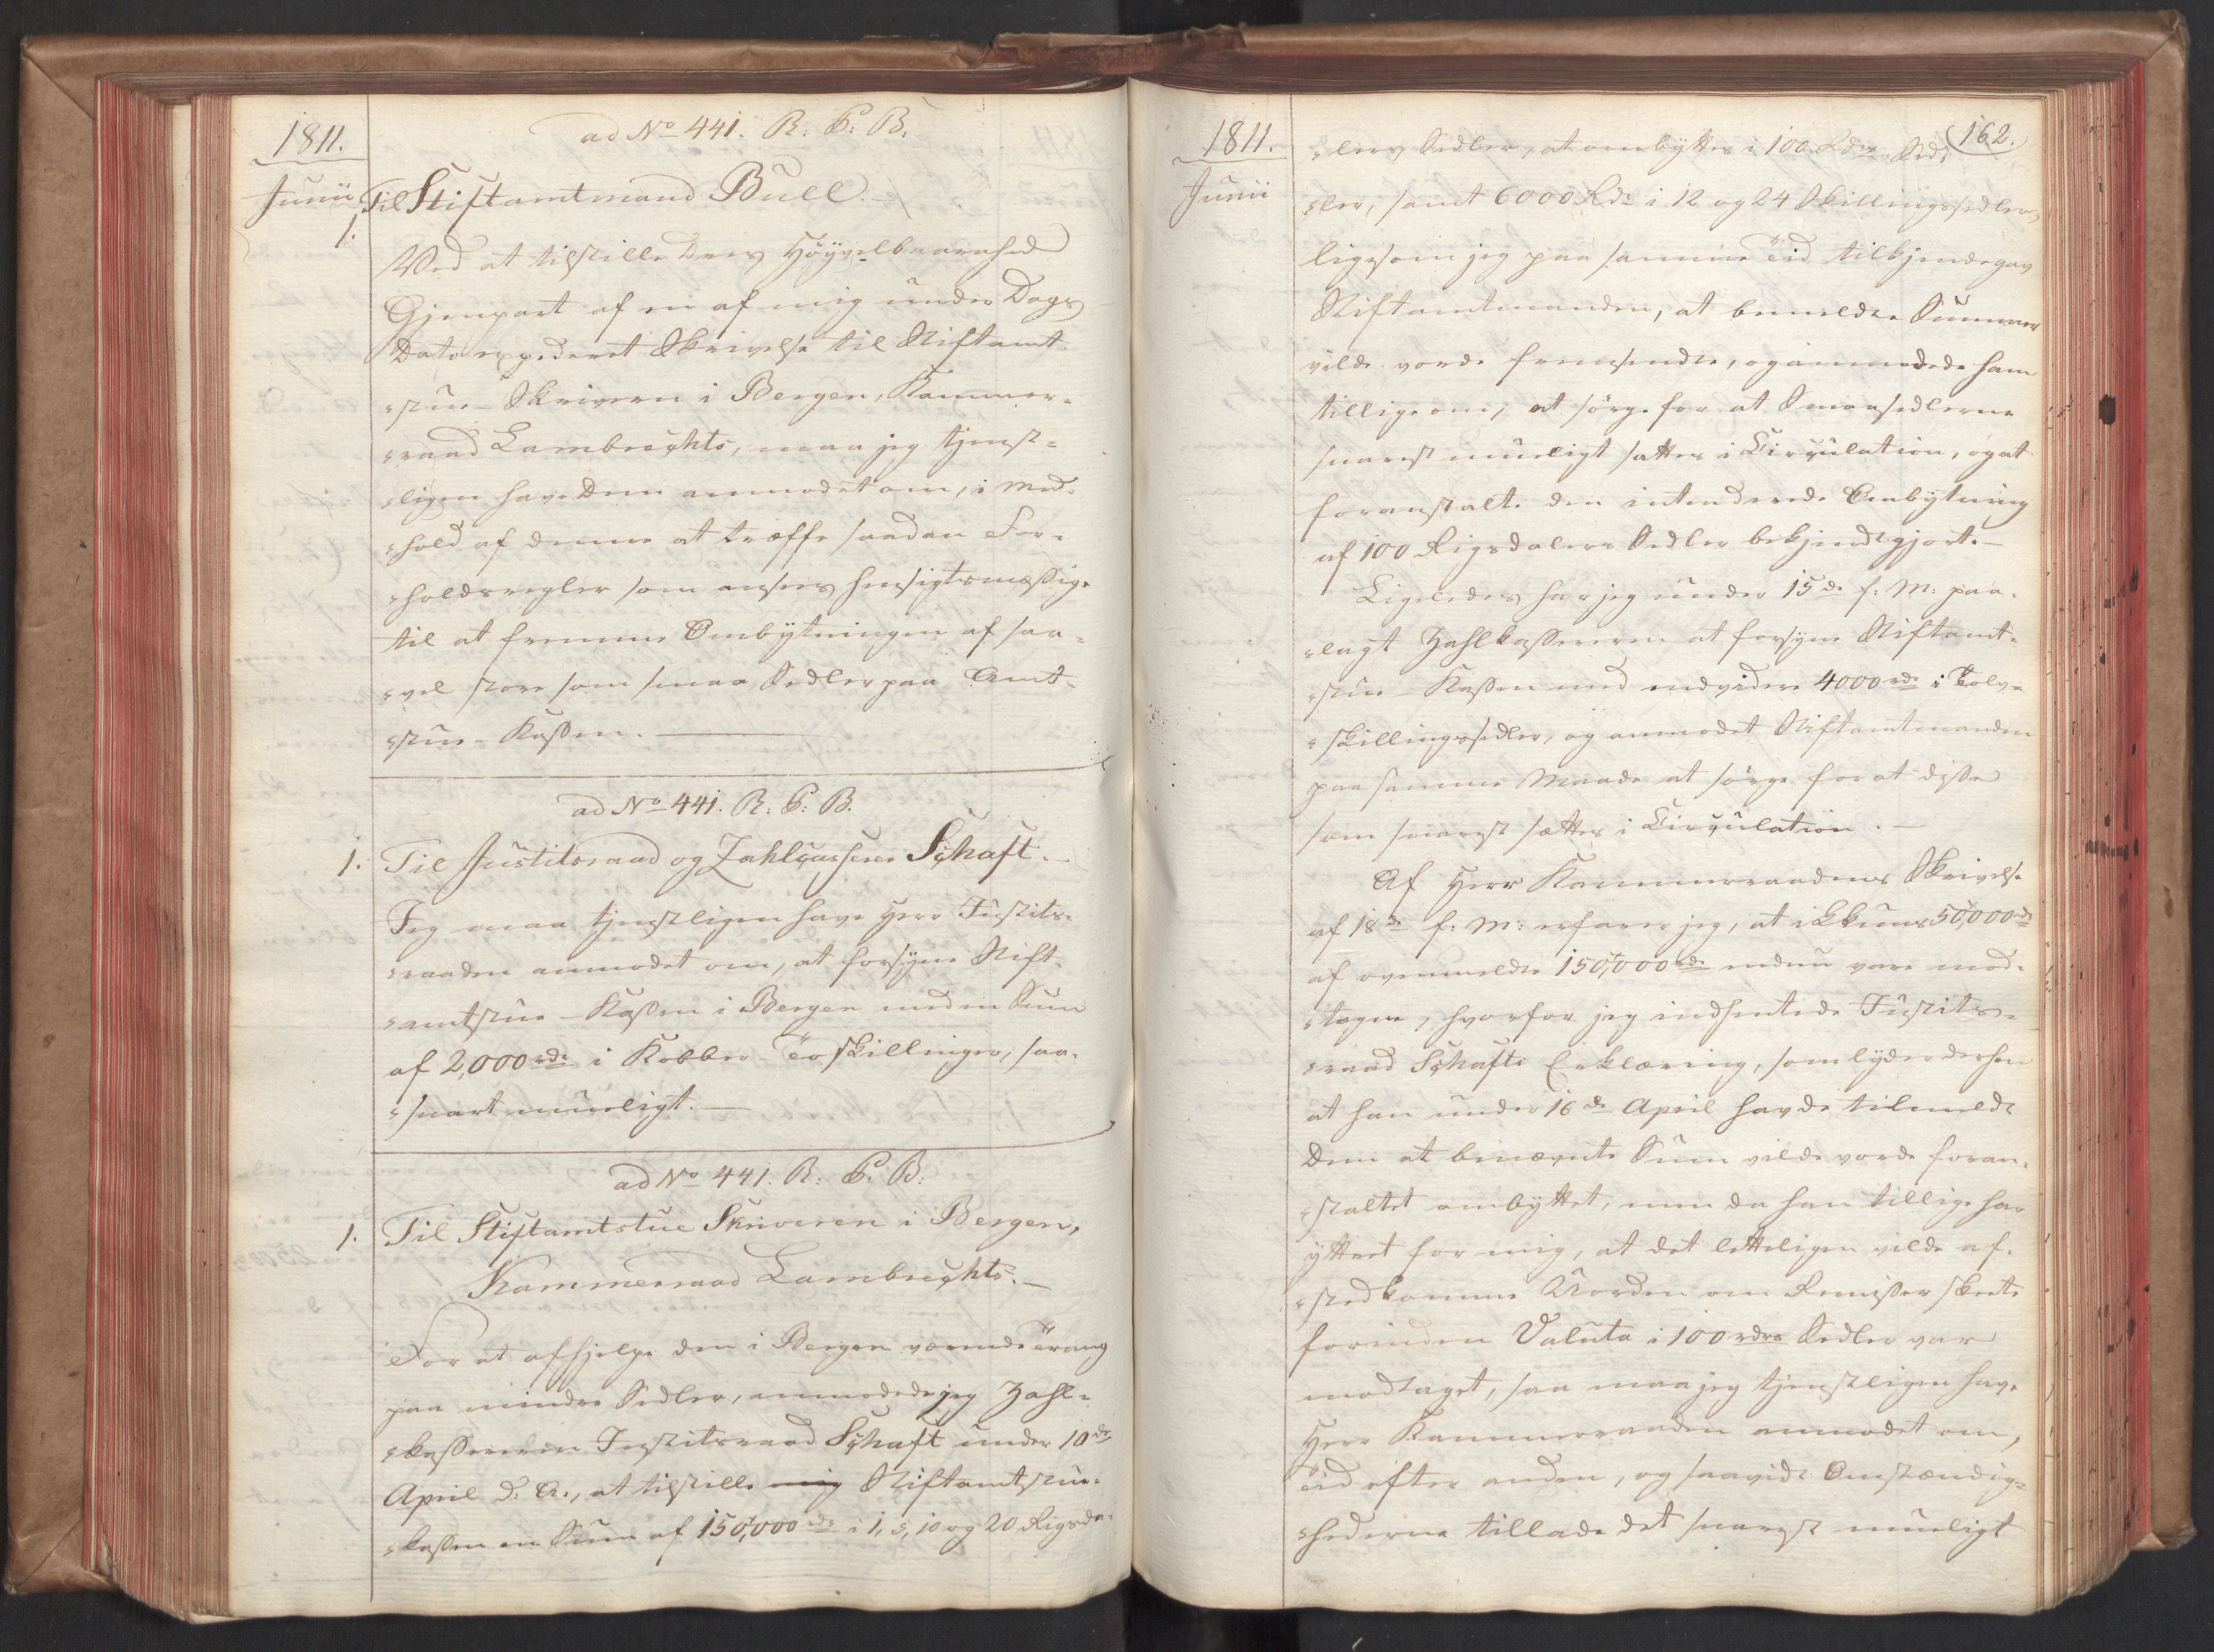 1811.
ad No 441. R: C: B:
Junii
1.
Til Stiftamtmand Bull.
Ved at tilstille Deres Höyvelbaarnhed
Gjenpart af en af mig under Dags
Dato expederet Skrivelse til Stiftamt
"stue-Skriveren i Bergen, Kammer-
"raad Lambreghts, maa jeg tjenst-
"ligen have Dem anmodet om, i Med-
"hold af denne at træffe saadan For-
"holdsregler som ansees hensigtsmæssige
til at fremme Ombytningen af saa-
"vel store som smaa Sedler paa Amt-
"stue-Kassen.
ad No 441. R: C: B.
1.
Til Justitsraad og Zahlcasserer Schaft.
Jeg maa tjenstligen have Herr Justits-
"raaden anmodet om, at forsyne Stift-
"amtstue-Kassen i Bergen med en Sum
af 2,000 rdr i Kobber-Toskillinger, saa-
"snart mueligt.
ad No 441. R: C: B:
1.
Til Stiftamtstue Skriveren i Bergen,
Kammerraad Lambreghts.
For at afhjelpe den i Bergen værende Trang
paa mindre Sedler, anmodede jeg Zahl-
"kassereren Justitsraad Schaft under 10de
April d. A., at tilstille mig Stiftamtstue-
"kassen en Sum af 150,000 rdr i 1, 5, 10 og 20 Rigsda-
1811.
Junii
162.
"lers Sedler, at ombyttes i 100 Rdrs Sed-
"ler, samt 6000 Rdr i 12 og 24 Skillingssedler,
ligesom jeg paa samme Tid tilkjendegav
Stiftamtmanden, at bemeldte Summer
vilde vorde fremsendte, og anmodede ham
tillige om, at sörge for at Smaasedlerne
snarest mueligt sattes i Circulation, og at
foranstalte den intenderede Ombytning
af 100 Rigsdalers Sedler bekjendtgjort.
Ligeledes har jeg under 15de f: M: paa-
"lagt Zahlkassereren at forsyne Stiftamt-
"stue-Kassen med endvidere 4000 rdr i Tolv-
"skillingssedler, og anmodet Stiftamtmanden
paa samme Maade at sörge for at disse
som snarest sættes i Circulation.
Af Herr Kammerraadens Skrivelse
af 18de f: M: erfarer jeg, at ikkuns 50,000 rdr
af ovenmeldte 150,000 rdr endnu vare mod-
"tagne, hvorfor jeg indhentede Justits-
"raad Schafts Erklæring, som lyder derhen
at han under 16de April havde tilmeldt
Dem at benævnte Sum vilde vorde foran-
"staltet ombyttet, men da han tillige har
yttret for mig, at det letteligen vilde af-
"stedkomme Uorden om Remisser skeete
forinden Valuta i 100 rdrs Sedler var
modtaget, saa maa jeg tjenstligen have
Herr Kammerraaden anmodet om,
Tid efter anden, og saavidt Omstændig-
"hederne tillade det snarest mueligt